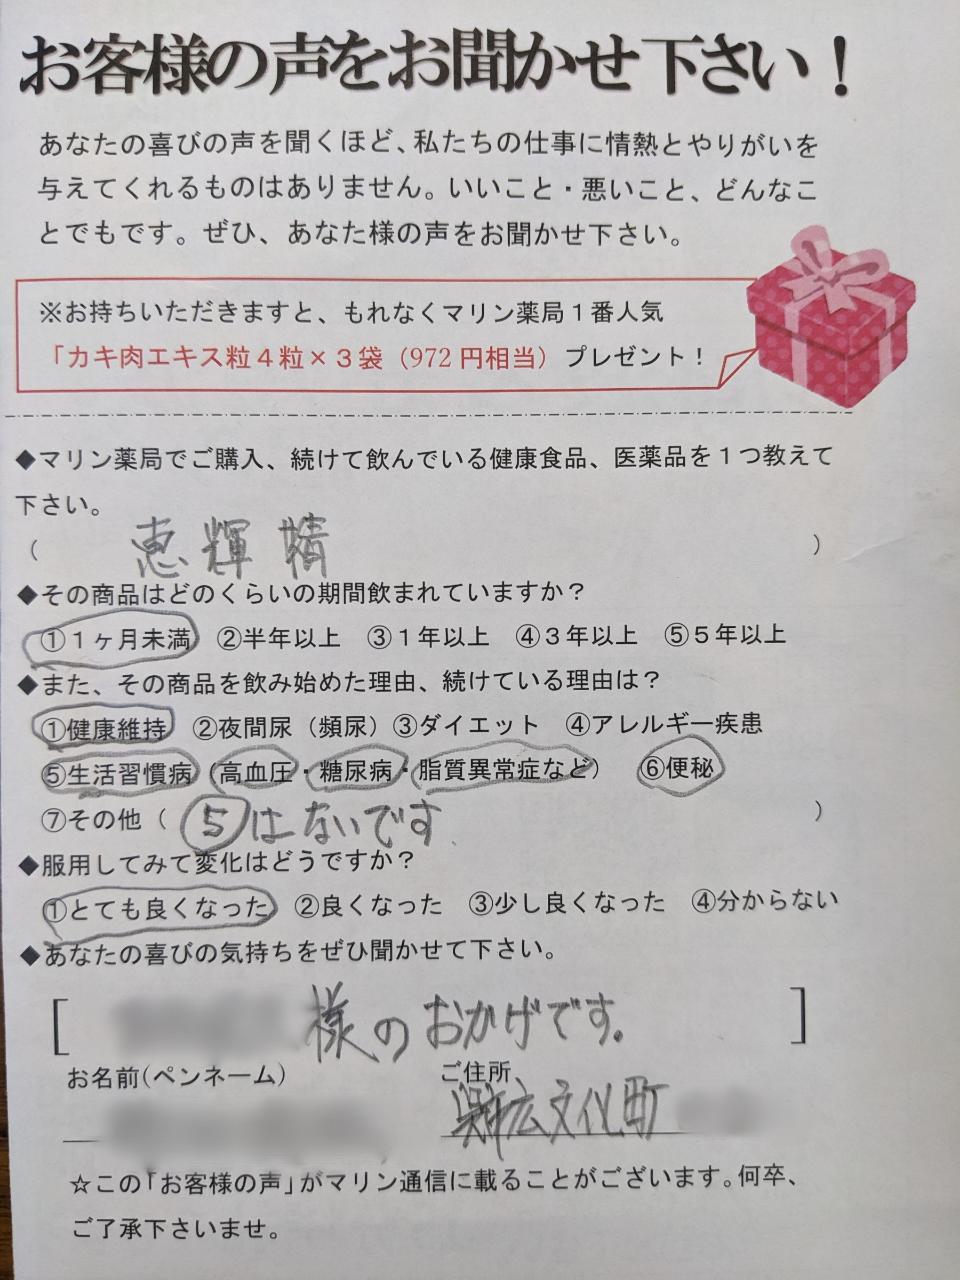 お客様の声をお聞かせ下さい！
あなたの喜びの声を聞くほど、私たちの仕事に情熱とやりがいを
与えてくれるものはありません。いいこと・悪いこと、どんなこ
とでもです。ぜひ、あなた様の声をお聞かせ下さい。
※お持ちいただきますと、もれなくマリン薬局１番人気
「カキ肉エキス粒４粒×３袋（972円相当）プレゼント！
◆マリン薬局でご購入、続けて飲んでいる健康食品、医薬品を１つ教えて
下さい。
（ 恵輝精 ）
◆その商品はどのくらいの期間飲まれていますか？
①１ヶ月未満 ②半年以上 ③１年以上 ④３年以上 ⑤５年以上
◆また、その商品を飲み始めた理由、続けている理由は？
①健康維持 ②夜間尿（頻尿）③ダイエット ④アレルギー疾患
⑤生活習慣病（高血圧・糖尿病・脂質異常症など） ⑥便秘
⑦その他（ ⑤はないです ）
◆服用してみて変化はどうですか？
①とても良くなった ②良くなった ③少し良くなった ④分からない
◆あなたの喜びの気持ちをぜひ聞かせて下さい。
[ 様のおかげです。 ]
お名前(ペンネーム) ご住所
広文化町
☆この「お客様の声」がマリン通信に載ることがございます。何卒、
ご了承下さいませ。